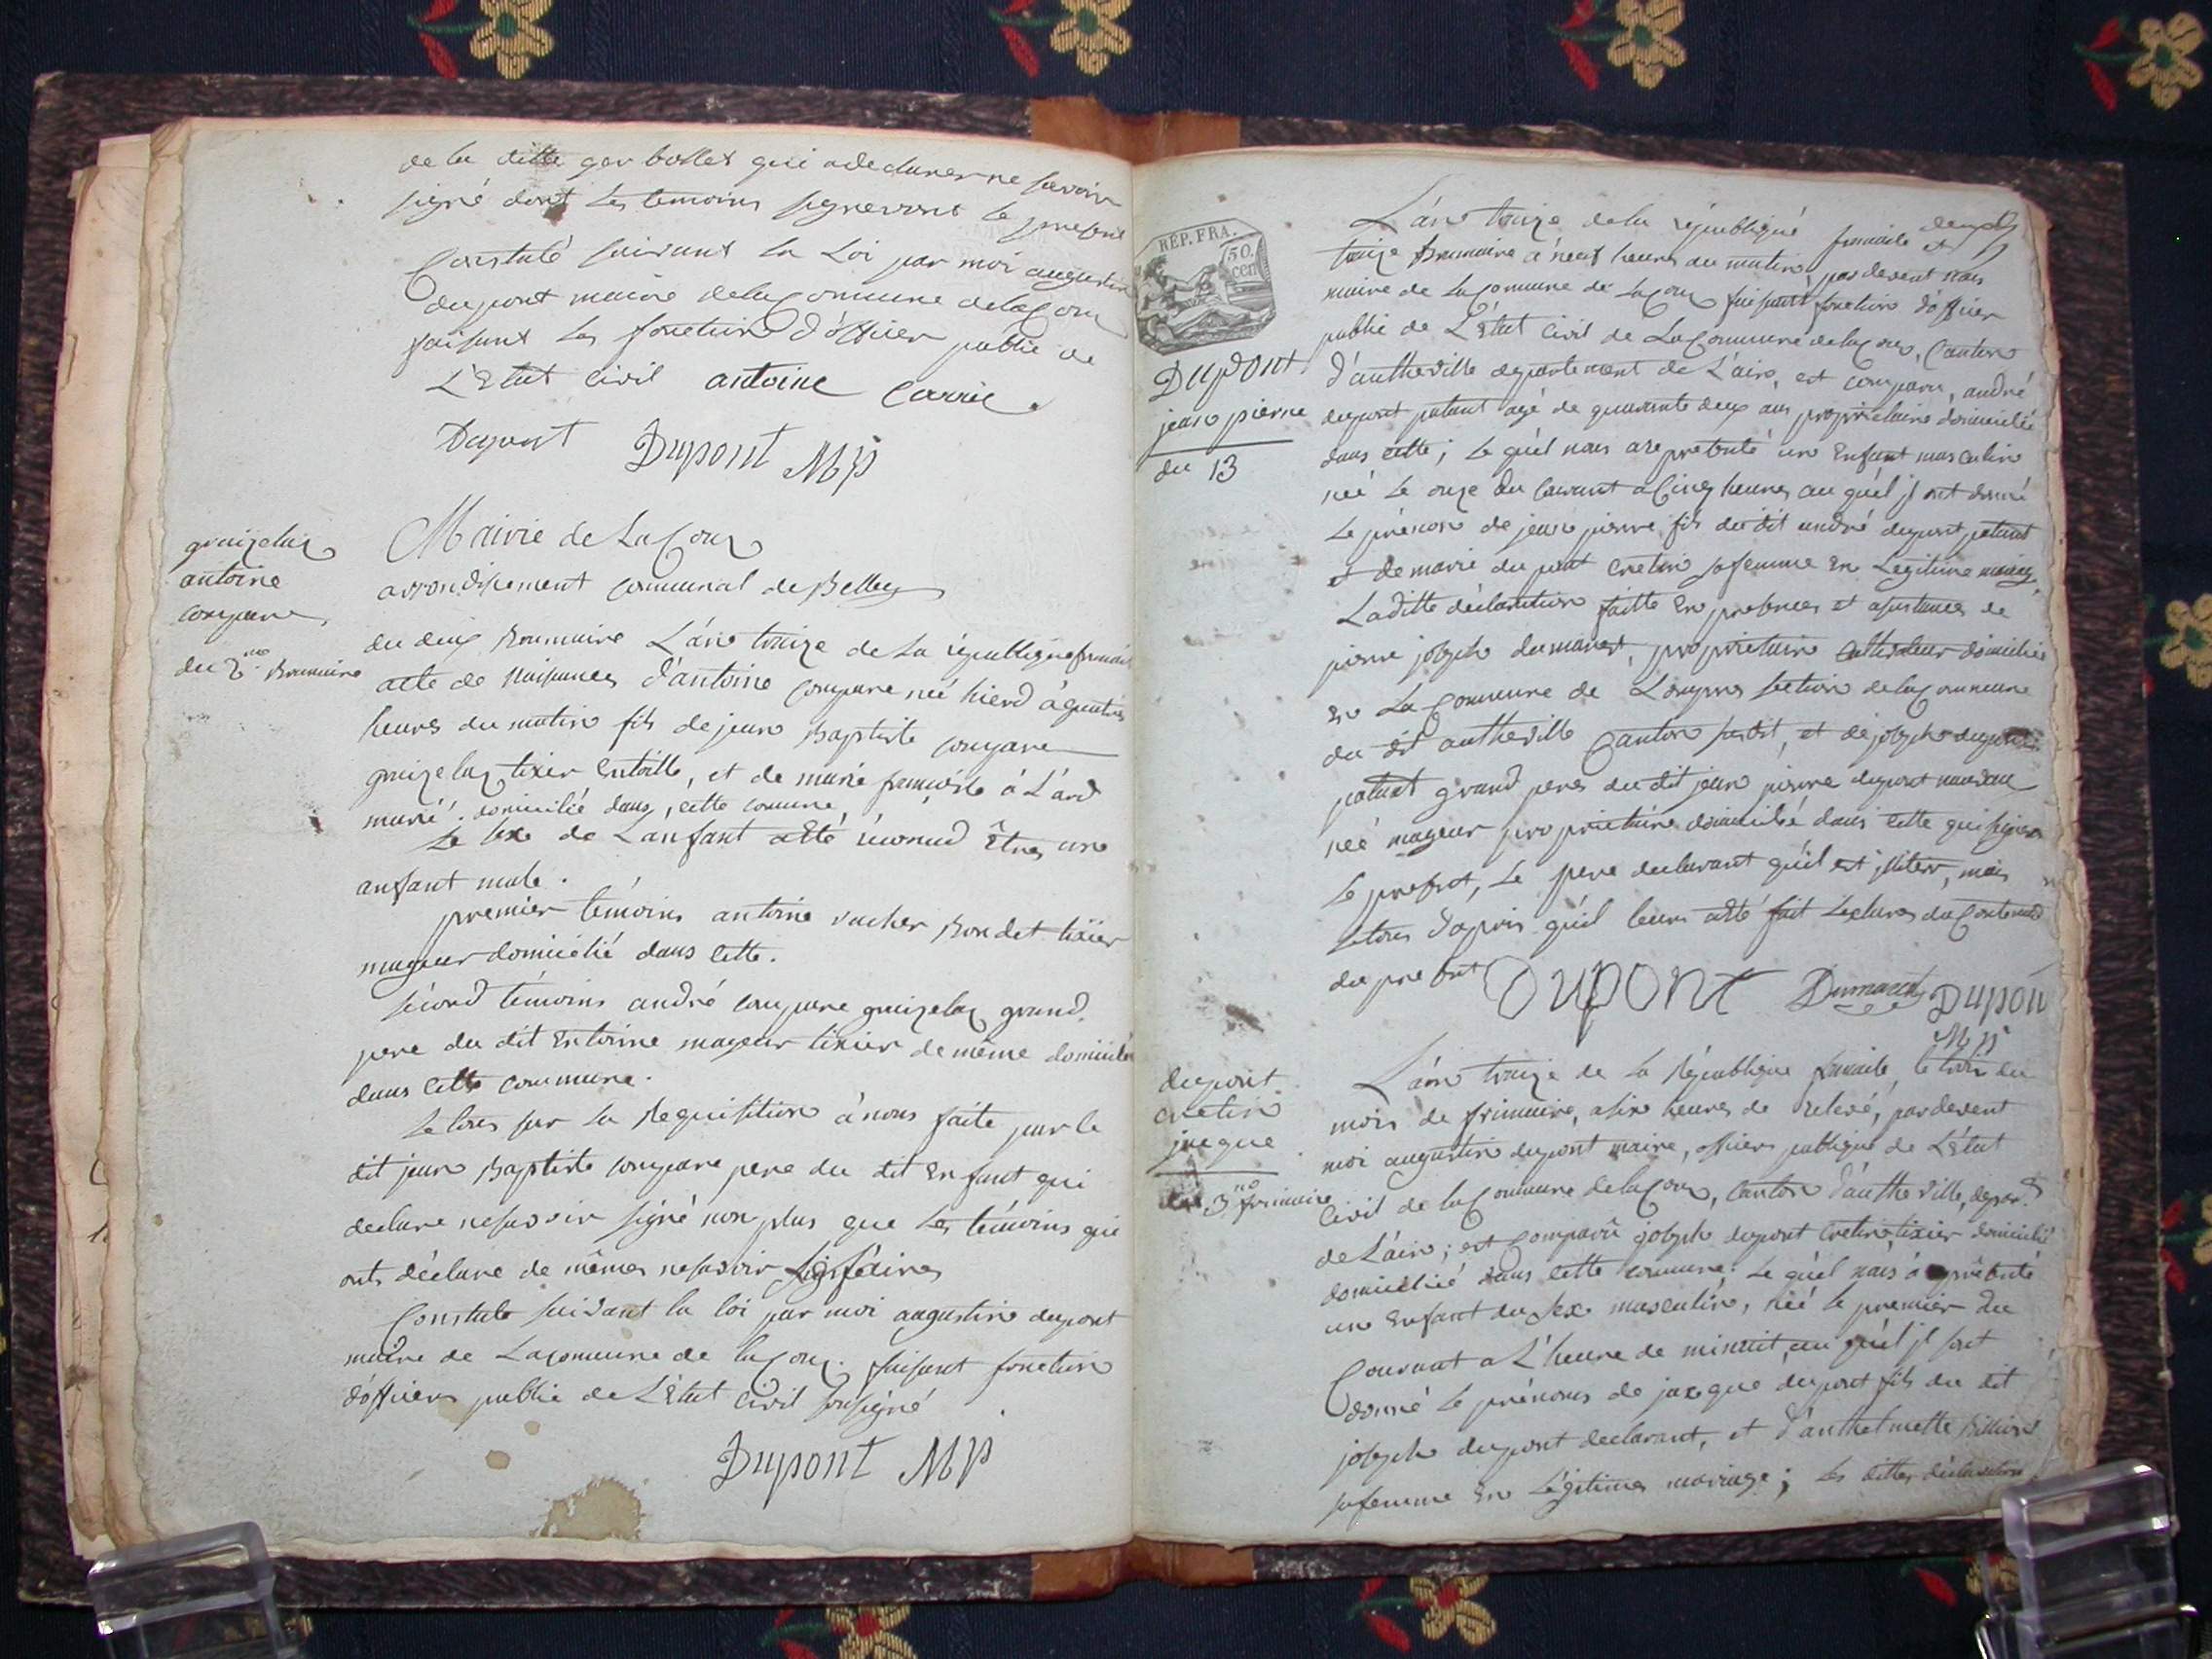 de la ditte ger bollet qui a declarer ne savoir
signé dont les temoins signeront le present
Constaté suivant la Loi par moi augustin
dupont maire de la Commune de lacoux
faisant les fonction d'officier public de
L'Etat civil antoine Carrier
Dupont Dupont MP
graizelux
antoine
compare
du 2me Brumaire
Mairie de La Coux
arrondisement communal de Belley
du deux Brumaire L'an traize de la république francaise
acte de Naisances d'antoine compare né hierd à quatres
heures du matin fils de jean Baptiste compare
graizelux tixier en toille, et de marie françoise à L'ard
marié. domiciliée dans cette comune
Le sexe de L'anfant a été reconud Êtres une
anfant male.
premier témoins antoine vucher Bondet tixier
mageur domicilié dans cette.
second témoins andré compare graizelux grand
pere du dit Entoine mageur tixier de même domicilié
dans cette commune.
Le tous sur la Requisition à nous faite par le
dit jean Baptiste compare pere du dit Enfant qui
declare ne savoir signé non plus que les témoins qui
onts déclare de mêmes ne savoir
Constate suivant la loi par moi augustin dupont
maire de La commune de lacoux. faisant fonction
d'officiers public de L'Etat Civil sousigné
Dupont MP
RÉP. FRA.
50.
cen
Dupont
jean pierre
du 13
L'an traize de la république francaise et
traize Brumaire à neuf heures du matin par devent nous
maire de la Comune de lacoux faisant fonction d'officier
public de L'Etat Civil de La Commune de lacoux, Canton
d'autheville departement de L'ain, est comparu, andré
dupont patant agé de quarante deux ans propriétaire domicilié
dans cette; Le quel nous a représenté un Enfant masculin
née Le onze du Courant a Cinq heures au quel jl ont donné
Le prénom de jean pierre fils du dit andré dupont patant
et de marie dupont cretin sa femme En Legitime mariage
La ditte déclaration faitte En presences et asistances de
pierre joseph dumarest, propriétaire cultivateur domicilié
En La Commune de Longpres section de la Commune
du dit autheville Canton susdit, et de joseph dupont
patant grand peres du dit jean pierre dupont nouveau
née mageur propriétaire domicilié dans cette qui signe
Le present, Le pere declarant qu'il est jlitere, mais
le tous d'après qu'il leurs a été fait Lectures du Contenud
du present Dupont Dumarest Dupon
MP
dupont
cretin
jacque
du 3me frimaire
L'an traize de La République francaise, le trois du
mois de frimaire, a six heures de relevé, par devent
moi augustin dupont maire, officiers publique de L'Etat
Civil de la Commune de lacoux, Canton d'autheville, depart.
de L'ain; est Comparû joseph dupont Cretin tixier domicilié
domicilié dans cette comune; Le quel nous à présenté
un Enfant du sexe masculin, née le premier du
Courant a L'heure de minuit, au quel jl sont
donné Le prénoms de jaxque dupont fils du dit
joseph dupont declarant, et d'anthelmette Billion
sa femme En Légitimes mariage; Les dittes déclaration